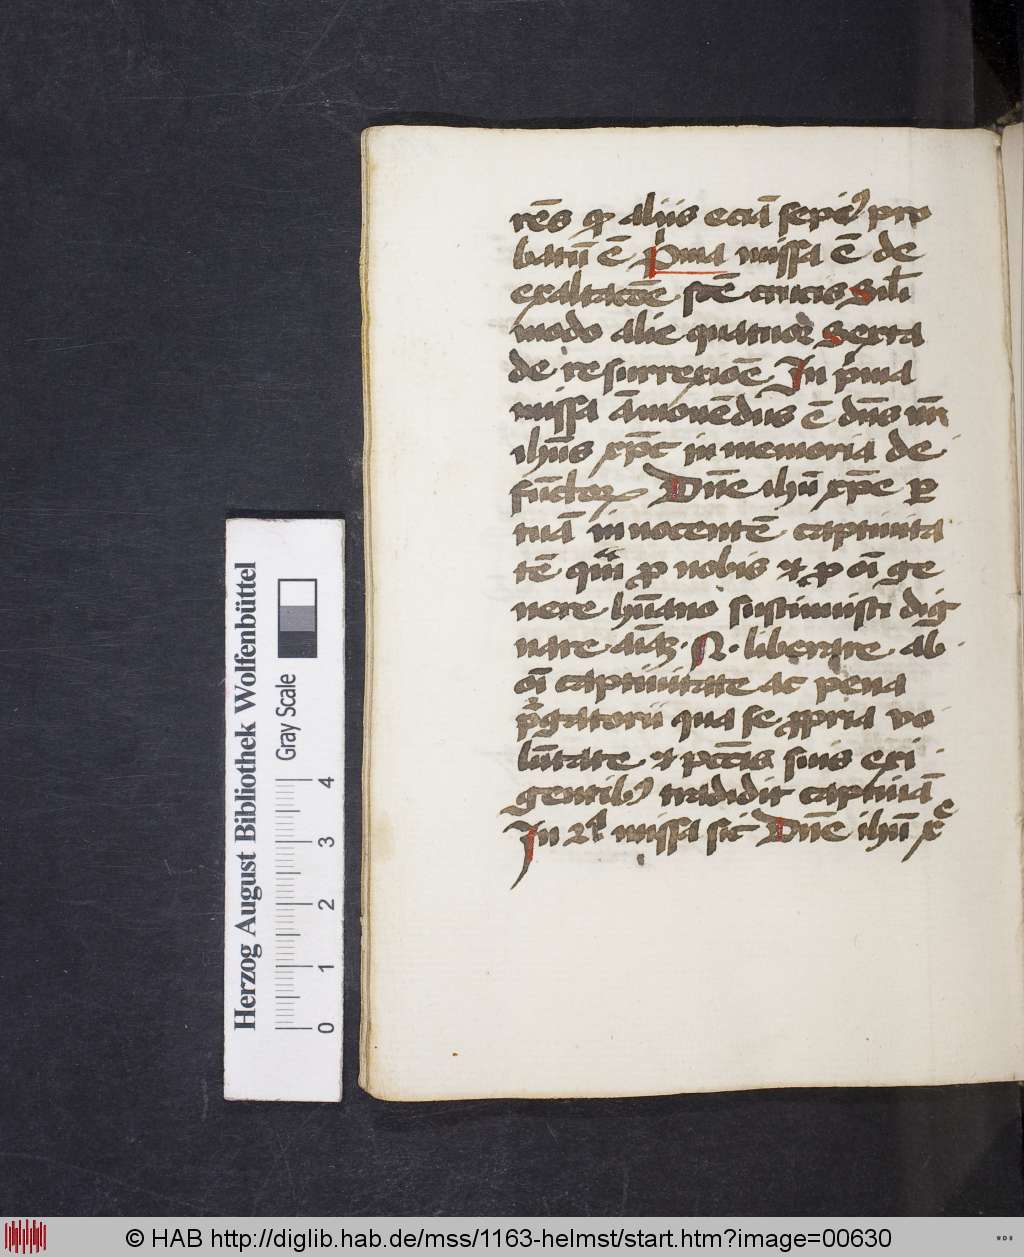 rēs qꝫ aliis eciā sepiꝰ pro
batū ē Pͥma missa ē de
exaltacōe scē crucis Sili̅
modo alie quatuor Sexta
de resurrexiōe In pͥma
missa āmonēdus ē dn̄s nr̄
ihūs xp̄c in memoria de
fūctoꝝ Dn̄e ihū xp̄e ꝑ
tuā innocentē captiuita
tē quā ꝓ nobis et ꝓ oī ge
nere hūano sustinuisti dig
nare aīaꝫ · N · liberare ab
oī captiuitate ac pena
pͥgatorii qua se ꝓpria vo
lūtate et pctīs suis exi
gentibꝰ tradidit captiuā
In 2ª missa sic Dn̄e ihū x̄
Herzog August Bibliothek Wolfenbüttel
Gray Scale
0 1 2 3 4
© HAB http://diglib.hab.de/mss/1163-helmst/start.htm?image=00630